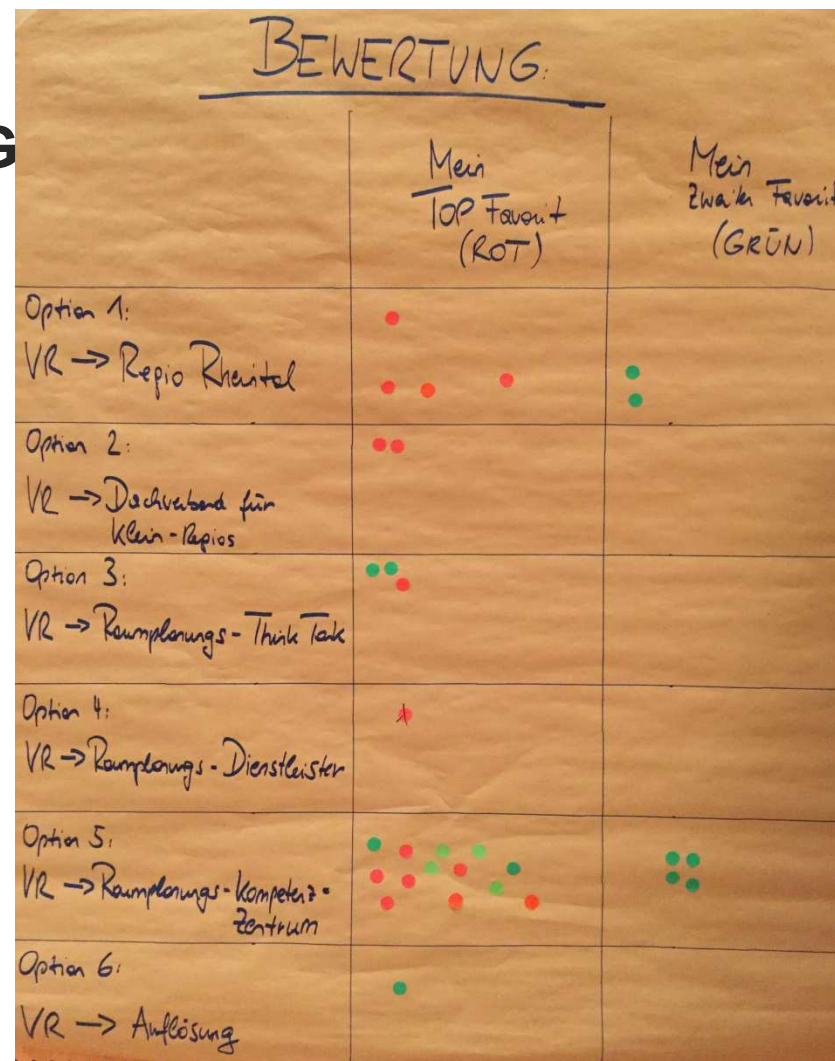 BEWERTUNG:
G
Mein
TOP Favorit
(ROT)
Mein
Zweiter Favorit
(GRÜN)
Option 1:
VR → Regio Rheintal
Option 2:
VR → Dachverband für
Klein-Regios
Option 3:
VR → Raumplanungs-Think Tank
Option 4:
VR → Raumplanungs-Dienstleister
Option 5:
VR → Raumplanungs-Kompetenz-
Zentrum
Option 6:
VR → Auflösung